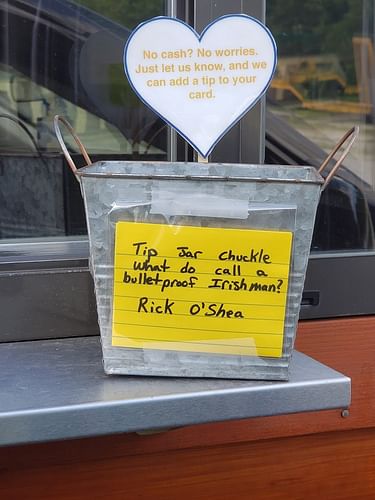 No cash? No worries.
Just let us know, and we
can add a tip to your
card.
Tip Jar chuckle
What do call a
bulletproof Irishman?
Rick O'Shea